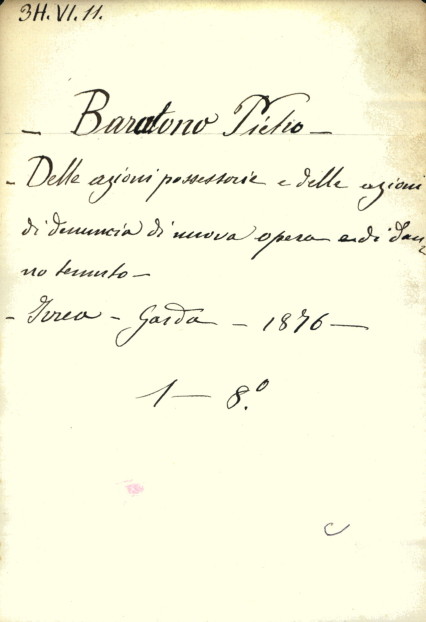 3H.VI.11.
— Baratono Pietro —
- Delle azioni possessorie e delle azioni
di denuncia di nuova opera e di dan-
no temuto —
- Ivrea - Garda - 1876 —
1 — 8.º
C